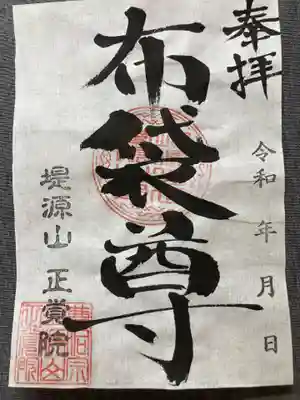 奉拝
令和 年 月 日
布袋尊
堤源山 正覚院